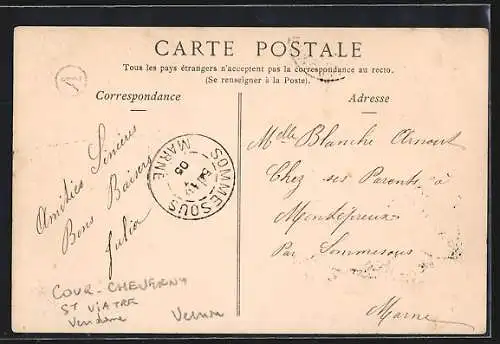 CARTE POSTALE
Tous les pays étrangers n'acceptent pas la correspondance au recto.
(Se renseigner à la Poste).
Correspondance
Adresse
Amitiés Sincères
Bons Baisers
Julia
SOMMESOUS
MARNE
05
Melle Blanche Arnout
Chez ses Parents à
Montépreux
Par Sommesous
Marne
COUR-CHEVERNY
ST VIATRE
Vendôme